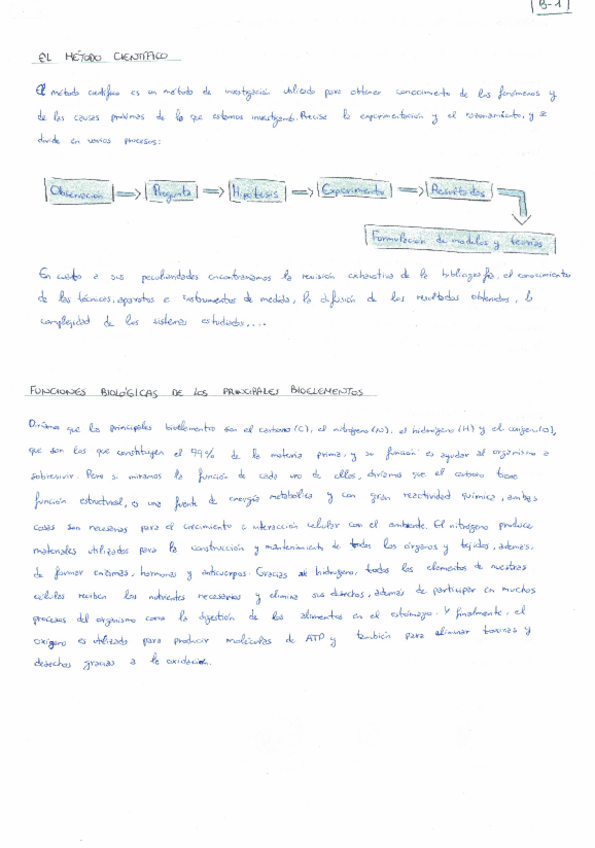 B-1
EL MÉTODO CIENTÍFICO
El método científico es un método de investigación utilizado para obtener conocimiento de los fenómenos y
de las causas próximas de lo que estamos investigando. Precisa la experimentación y el razonamiento, y se
divide en varios procesos:
Observación Pregunta Hipótesis Experimento Resultados
Formulación de modelos y teorías
En cuanto a sus peculiaridades encontraríamos la revisión exhaustiva de la bibliografía, el conocimiento
de las técnicas, aparatos e instrumentos de medida, la difusión de los resultados obtenidos, la
complejidad de los sistemas estudiados,....
FUNCIONES BIOLÓGICAS DE LOS PRINCIPALES BIOELEMENTOS
Diríamos que los principales bioelementos son el carbono (C), el nitrógeno (N), el hidrógeno (H) y el oxígeno (O),
que son los que constituyen el 99% de la materia prima, y su función es ayudar al organismo a
sobrevivir. Pero si miramos la función de cada uno de ellos, diríamos que el carbono tiene
función estructural, es una fuente de energía metabólica y con gran reactividad química, ambas
cosas son necesarias para el crecimiento e interacción celular con el ambiente. El nitrógeno produce
materiales utilizados para la construcción y mantenimiento de todos los órganos y tejidos, además,
de formar enzimas, hormonas y anticuerpos. Gracias al hidrógeno, todos los elementos de nuestras
células reciben los nutrientes necesarios y elimina sus desechos, además de participar en muchos
procesos del organismo como la digestión de los alimentos en el estómago. Y finalmente, el
oxígeno es utilizado para producir moléculas de ATP y también para eliminar toxinas y
desechos gracias a la oxidación.